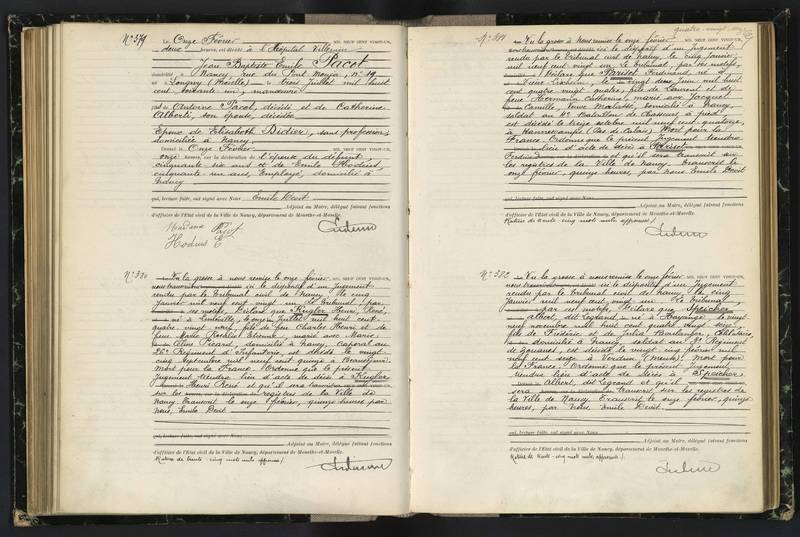 N° 379
Le Onze Février MIL NEUF CENT VINGT-UN,
deux heures, est décédé à l'Hôpital Villemin
Jean Baptiste Emile Pacot
domicilié à Nancy, rue du Pont Mouja, N° 19
né à Longwy (Moselle) le trois Juillet mil huit
cent soixante un, manœuvre
fils de Antoine Pacot, décédé et de Catherine
Alberti, son épouse, décédée
Epoux de Elisabeth Didier, sans profession,
domiciliée à Nancy
Dressé le Onze Février MIL NEUF CENT VINGT-UN,
onze heures, sur la déclaration de l'épouse du défunt,
cinquante six ans et de Emile Hodius,
cinquante un ans, Employé, domicilié à
Nancy
qui, lecture faite, ont signé avec Nous Emile Devit
Adjoint au Maire, délégué faisant fonctions
d'officier de l'Etat civil de la Ville de Nancy, département de Meurthe-et-Moselle.
Madame Pacot
Hodius E
N° 380
Vu la grosse à nous remise le onze février MIL NEUF CENT VINGT-UN,
ici le dispositif d'un Jugement
rendu par le Tribunal civil de Nancy le cinq
Janvier mil neuf cent vingt un Le Tribunal, par
ces motifs, Déclare que Kugler Henri, René,
né à Lunéville, le Juillet mil huit cent
quatre vingt neuf, fils de feu Charles Henri et de
feue Etienne, marié avec Marie,
Aline Picard, domicilié à Nancy, caporal au
26e Régiment d'Infanterie, est décédé le vingt
cinq Septembre mil neuf cent quinze à
Mort pour la France. Ordonne que le présent
Jugement tiendra lieu d'acte de décès à Kugler
Henri René et qu'il sera transcrit
sur les registres de la Ville de
Nancy. Transcrit le onze février, quinze heures par
Nous, Emile Devit
qui, lecture faite, ont signé avec Nous
Adjoint au Maire, délégué faisant fonctions
d'officier de l'Etat civil de la Ville de Nancy, département de Meurthe-et-Moselle.
(Rature de trente-cinq mots nuls, approuvée)
quatre-vingt
N° 381
Vu la grosse à nous remise le onze février MIL NEUF CENT VINGT-UN,
ici le dispositif d'un Jugement
rendu par le Tribunal civil de Nancy, le cinq Janvier
mil neuf cent vingt un Le Tribunal, par ces motifs,
Déclare que Parisel Ferdinand né à
le vingt deux Juin mil huit
cent quatre vingt quatre, fils de Laurent et de
feue Hermann Catherine, marié avec Jacquel
Camille, domicilié à Nancy,
soldat au Bataillon de Chasseurs à pied,
est décédé le treize octobre mil neuf cent quatorze,
à Hannescamps (Pas de Calais) Mort pour la
France. Ordonne que le présent Jugement tiendra
lieu d'acte de décès à Parisel
Ferdinand et qu'il sera transcrit sur
les registres de la Ville de Nancy. Transcrit le
onze février, quinze heures, par Nous Emile Devit
qui, lecture faite, ont signé avec Nous
Adjoint au Maire, délégué faisant fonctions
d'officier de l'Etat civil de la Ville de Nancy, département de Meurthe-et-Moselle.
(Rature de trente-cinq mots nuls, approuvée)
N° 382
Vu la grosse à nous remise le onze février MIL NEUF CENT VINGT-UN,
ici le dispositif d'un Jugement
rendu par le Tribunal civil de Nancy, le cinq
Janvier mil neuf cent vingt un Le Tribunal,
par ces motifs, Déclare que Speicher
Albert, dit Legrand, né à Hayange le vingt
neuf novembre mil huit cent quatre vingt six,
fils de Frédéric et de Julie Boulanger, Célibataire,
domicilié à Nancy, soldat au Régiment
de Zouaves, est décédé le vingt cinq février mil
neuf cent seize à Verdun (Meuse) Mort pour
la France. Ordonne que le présent Jugement
tiendra lieu d'acte de décès à Speicher,
Albert, dit Legrand et qu'il
sera transcrit sur les registres de
la Ville de Nancy. Transcrit le onze février, quinze
heures, par Nous Emile Devit.
qui, lecture faite, ont signé avec Nous
Adjoint au Maire, délégué faisant fonctions
d'officier de l'Etat civil de la Ville de Nancy, département de Meurthe-et-Moselle.
(Rature de trente-cinq mots nuls, approuvée)